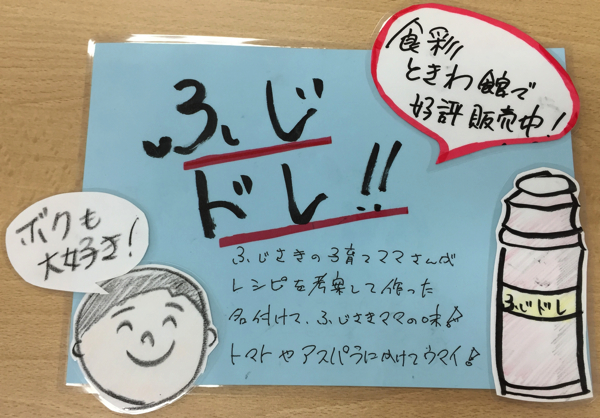 食彩
ときわ館で
好評販売中!
ふじ
ドレ!!
ボクも
大好き!
ふじさきの子育てママさんが
レシピを考案して作った
名付けて、ふじさきママの味♪
トマトやアスパラにかけてウマイ♪
ふじドレ